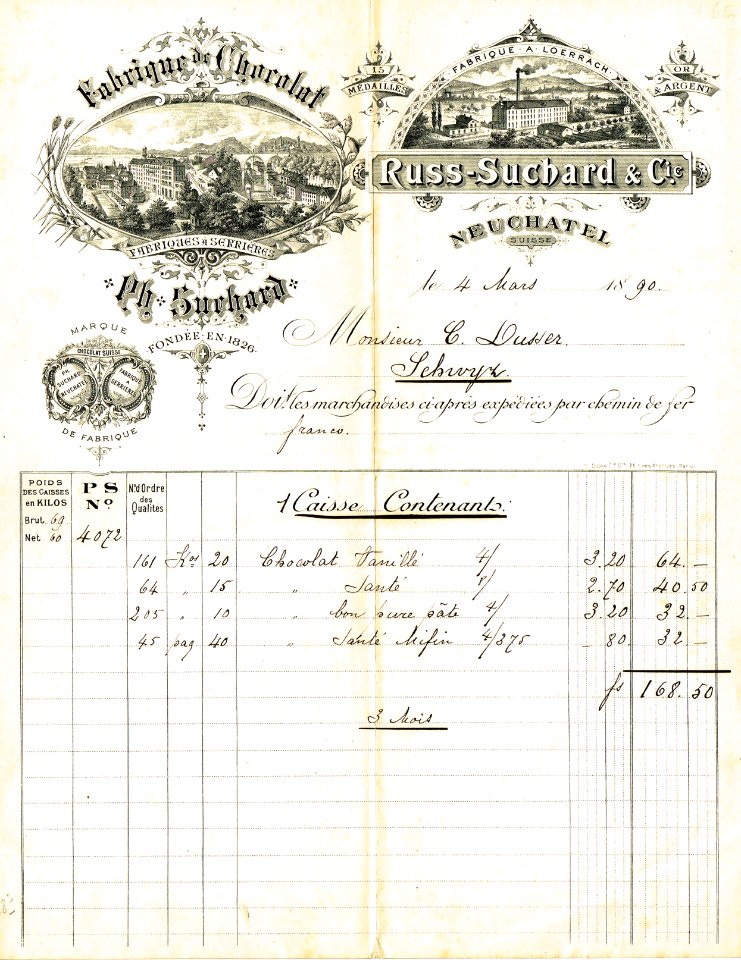 Fabrique de Chocolat
FABRIQUES à SERRIÈRES
Ph. Suchard
FONDÉE-EN-1826
15 MÉDAILLES
FABRIQUE · A · LOERRACH
OR & ARGENT
Russ-Suchard & Cie
NEUCHATEL
SUISSE
le 4 Mars 1890.
Monsieur C. Dusser
Schwyz.
MARQUE
CHOCOLAT SUISSE
PH. SUCHARD NEUCHATEL
FABRIQUE A SERRIÈRES
DE FABRIQUE
Doit les marchandises ci-après expédiées par chemin de fer
franco.
POIDS DES CAISSES en KILOS
Brut 69
Net 60
PS No.
4072
No d'Ordre des Qualités
1 Caisse Contenant:
161 Kos 20 Chocolat Vanillé 4/ 3.20 64.—
64 " 15 " Santé 8/ 2.70 40.50
205 " 10 " bon pure pâte 4/ 3.20 32.—
45 paq 40 " Santé Mifin 4/375 — 80. 32.—
fs 168.50
3 Mois